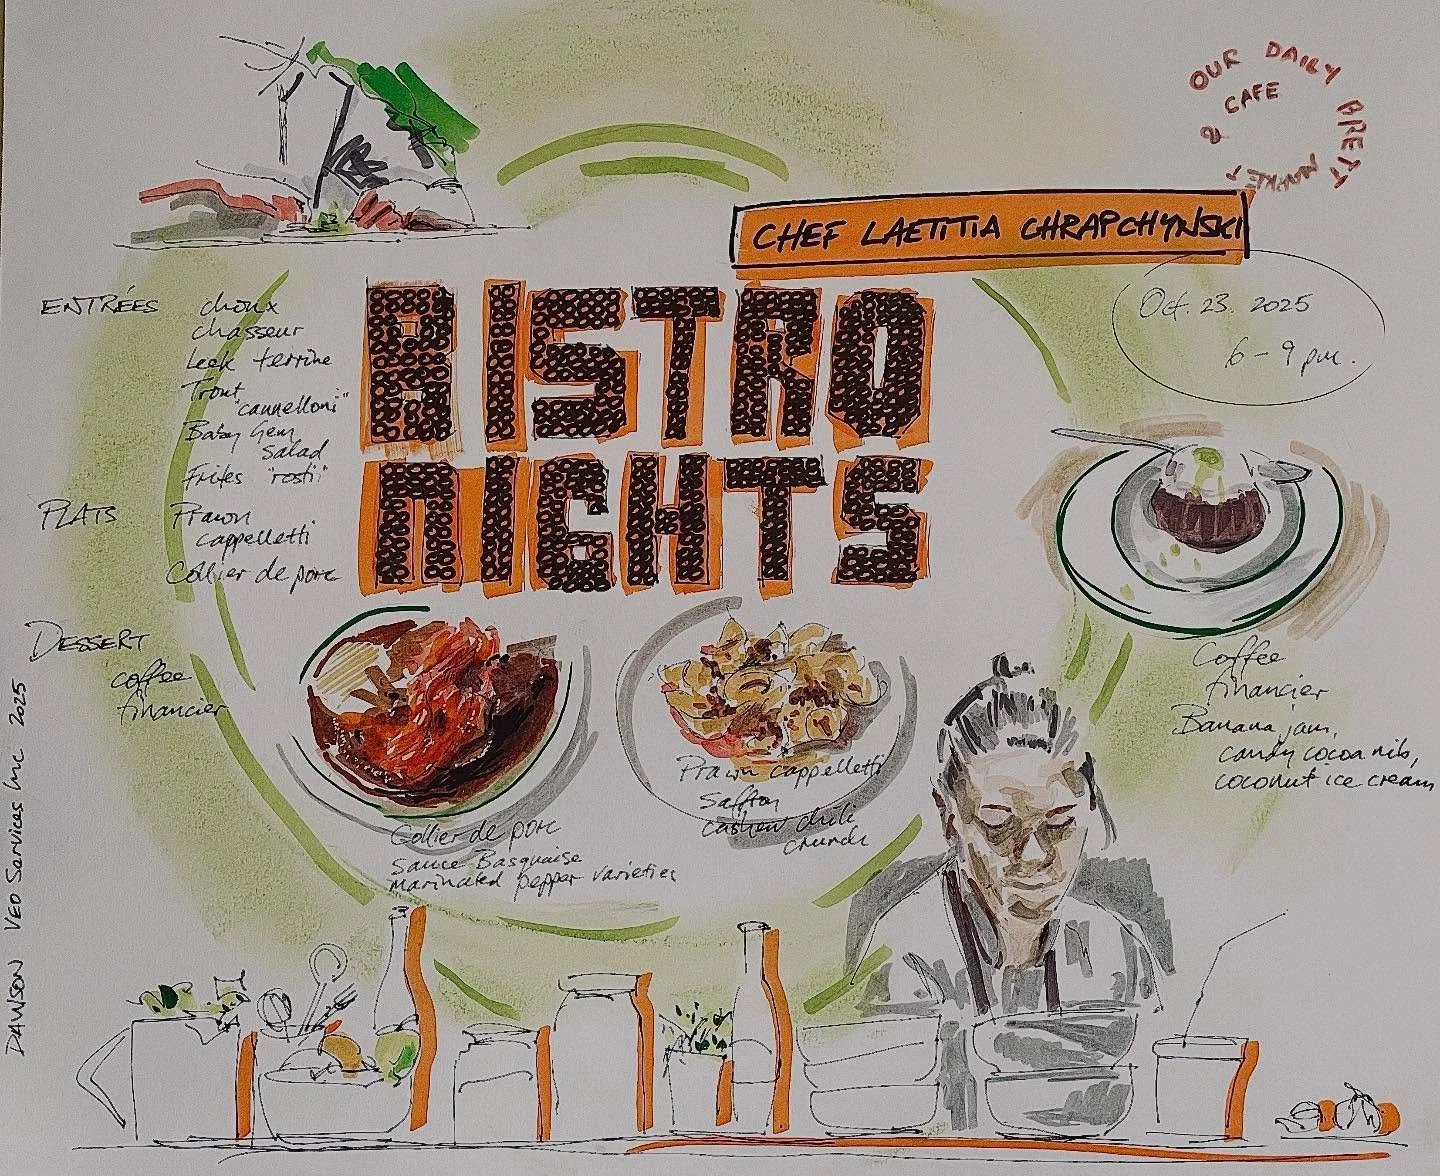 OUR DAILY BRETT
MARKET & CAFE
CHEF LAETITIA CHRAPCHYNSKI
Oct. 23. 2025
6 – 9 pm.
BISTRO
NIGHTS
ENTRÉES choux
chasseur
Leek terrine
Trout
"cannelloni"
Baby Gem
Salad
Frites "rosti"
PLATS Prawn
cappelletti
Collier de porc
DESSERT
coffee
financier
Collier de porc
Sauce Basquaise
Marinated pepper varieties
Prawn cappelletti
Saffron
cashew chili
crunch
Coffee
financier
Banana jam,
candy cocoa nib,
coconut ice cream
DAWSON VEO Services Inc 2025